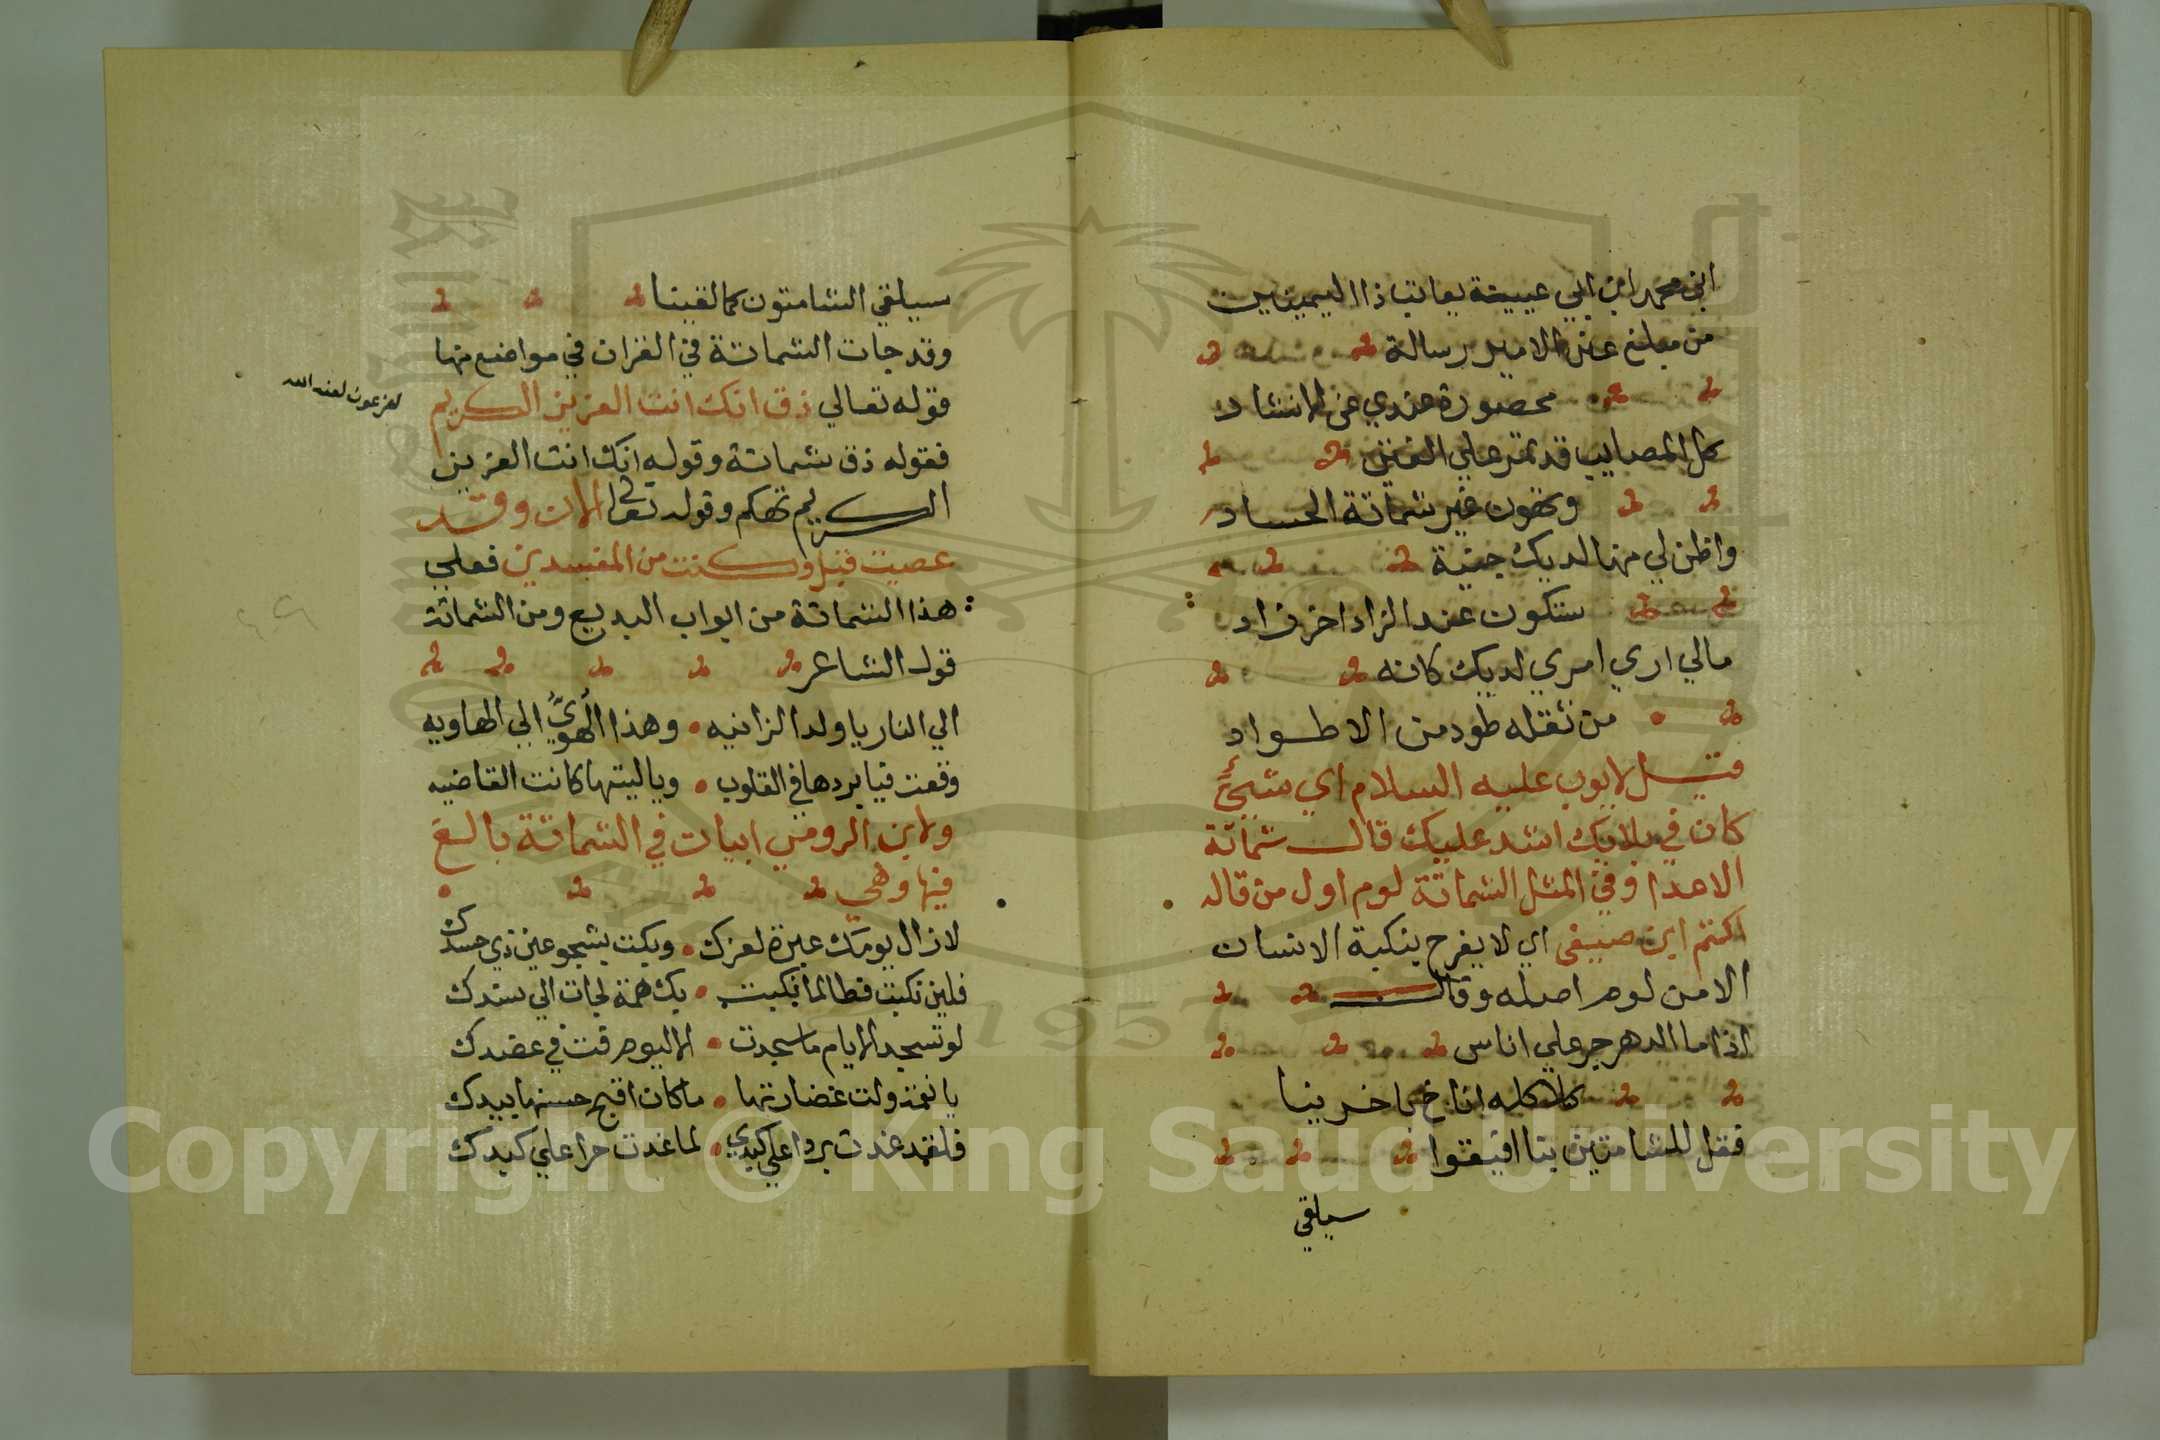 ابي محمد ابن ابي عيينة يعاتب ذا اليمينين
من مبلغ عني الامير رسالة
محصورة عندي عن الانشاد
كل المصايب قد تمر علي الفتي
وتهون غير شماتة الحساد
واظن لي منها لديك جنية
ستكون عند الزاد اخر زاد
مالي اري امري لديك كانه
من ثقله طود من الاطواد
قيل لايوب عليه السلام اي شيئ
كان في بلايك اشد عليك قال شماتة
الاعدا وفي المثل الشماتة لوم اول من قاله
اكثم ابن صيفي اي لا يفرح بنكبة الانسان
الا من لوم اصله وقال
اذا ما الدهر جر علي اناس
كلاكله اناخ باخرينا
فقل للشامتين بنا افيقوا
سيلقي
سيلقي الشامتون كما لقينا
وقد جات الشماتة في القران في مواضع منها
قوله تعالي ذق انك انت العزيز الكريم
لفرعون لعنه الله
فقوله ذق شماتة وقوله انك انت العزيز
الكريم تهكم وقوله تعالى الان وقد
عصيت قبل وكنت من المفسدين فعلي
هذا الشماتة من ابواب البديع ومن الشماتة
قول الشاعر
الي النار يا ولد الزانيه • وهذا الهويُّ الي الهاويه
وقعت فيا بردها في القلوب • ويا ليتها كانت القاضيه
ولابن الرومي ابيات في الشماتة بالغ
فيها وهي
لا زال يومك عبرة لغدك • وبكت بشجو عين ذي حسدك
فلين نكبت فطالما نكبت • بك همة لجات الي سندك
لو تسجد الايام ما سجدت • الا ليوم فت في عضدك
يا نعمة ولت غضارتها • ما كان اقبح حسنها بيدك
فلقد غدت بردا علي كبدي • لما غدت حرا علي كبدك
Copyright © King Saud University
1957